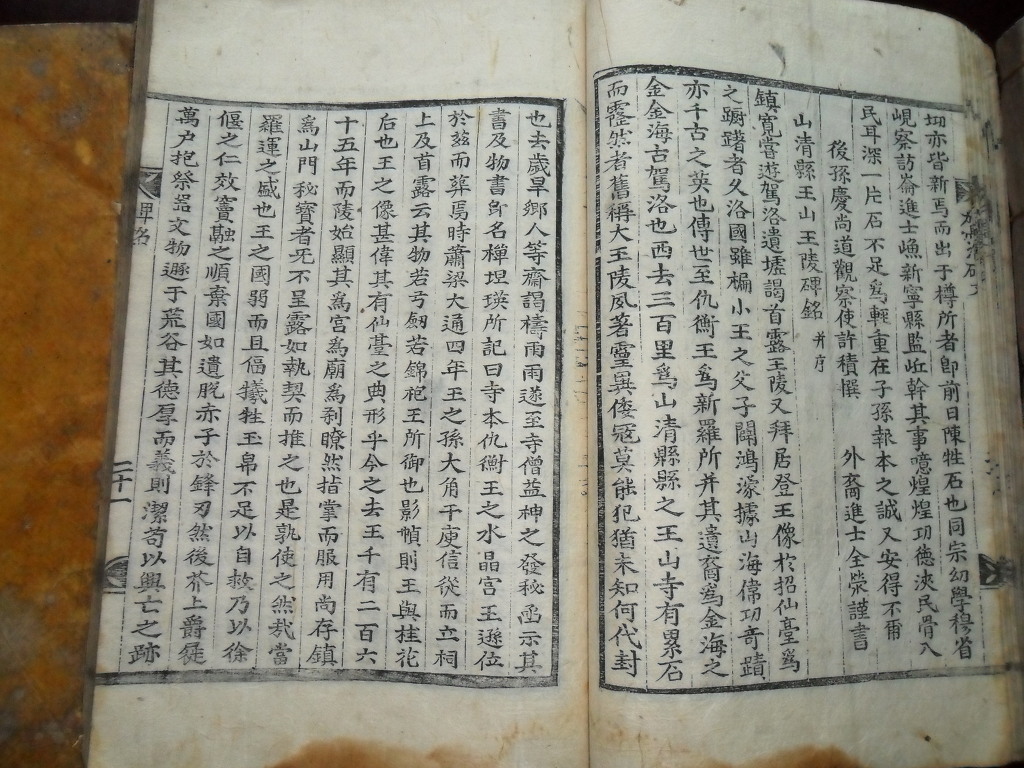 㓛亦皆新焉而出于樽所者卽前日陳牲石也同宗幼學穆省
峴察訪崙進士㠂新寧縣監岻幹其事噫煌煌功德浹民骨入
民耳深一片石不足爲輕重在子孫報本之誠又安得不爾
後孫慶尙道觀察使許積撰 外裔進士全榮謹書
山淸縣王山王陵碑銘 并序
鎭寬嘗遊駕洛遺墟謁首露王陵又拜居登王像於招仙臺爲
之躕躇者久洛國雖褊小王之父子闢鴻濛據山海偉功奇蹟
亦千古之英也傳世至仇衡王爲新羅所并其遺裔爲金海之
金金海古駕洛也西去三百里爲山淸縣縣之王山寺有累石
而靈然者舊稱大王陵夙著靈異倭寇莫能犯猶未知何代封
也去歲旱鄕人等齋謁禱雨雨遂至寺僧益神之發秘函示其
書及物書卽名樿 瑛所記曰寺本仇衡王之水晶宮王遜位
於玆而葬焉時蕭梁大通四年王之孫大角干庾信從而立祠
上及首露云其物若弓劒若錦袍王所御也影幀則王與桂花
后也王之像甚偉其有仙臺之典形乎今之去王千有二百六
十五年而陵始顯其爲宮爲廟爲刹瞭然指掌而服用尙存鎭
爲山門秘寶者旡不呈露如執契而推之也是孰使之然哉當
羅運之盛也王之國弱而且偪犧牲玉帛不足以自救乃以徐
偃之仁效竇融之順棄國如遺脫赤子於鋒刃然後芥上爵蓰
萬戶抱祭器文物遯于荒谷其德厚而義則潔苟以興亡之跡
碑銘
二十一